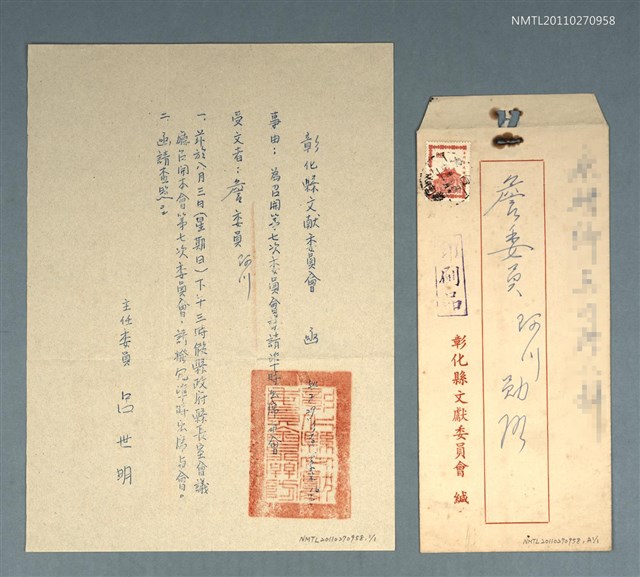 NMTL20110270958
彰化縣文献委員會 函
事由：為召開第七次委員會議請準時出席
受文者：詹委員 阿川
一、茲於八月三日(星期日)下午三時假縣政府縣長室會議
廳召開本會第七次委員會請撥冗準時出席与會。
二、函請查照。
主任委員 呂世明
NMTL20110270958.1/1
詹委員 阿川 勛啓
印刷品
彰化縣文獻委員會 緘
NMTL20110270958.A1/1